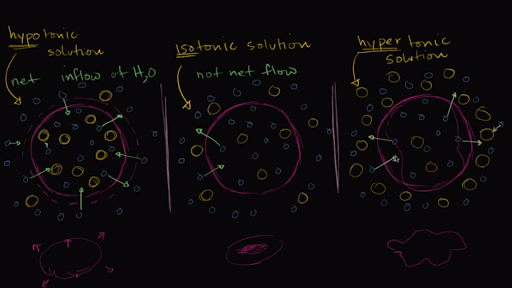 hypotonic
solution
net inflow of H₂O
isotonic solution
not net flow
hypertonic
solution